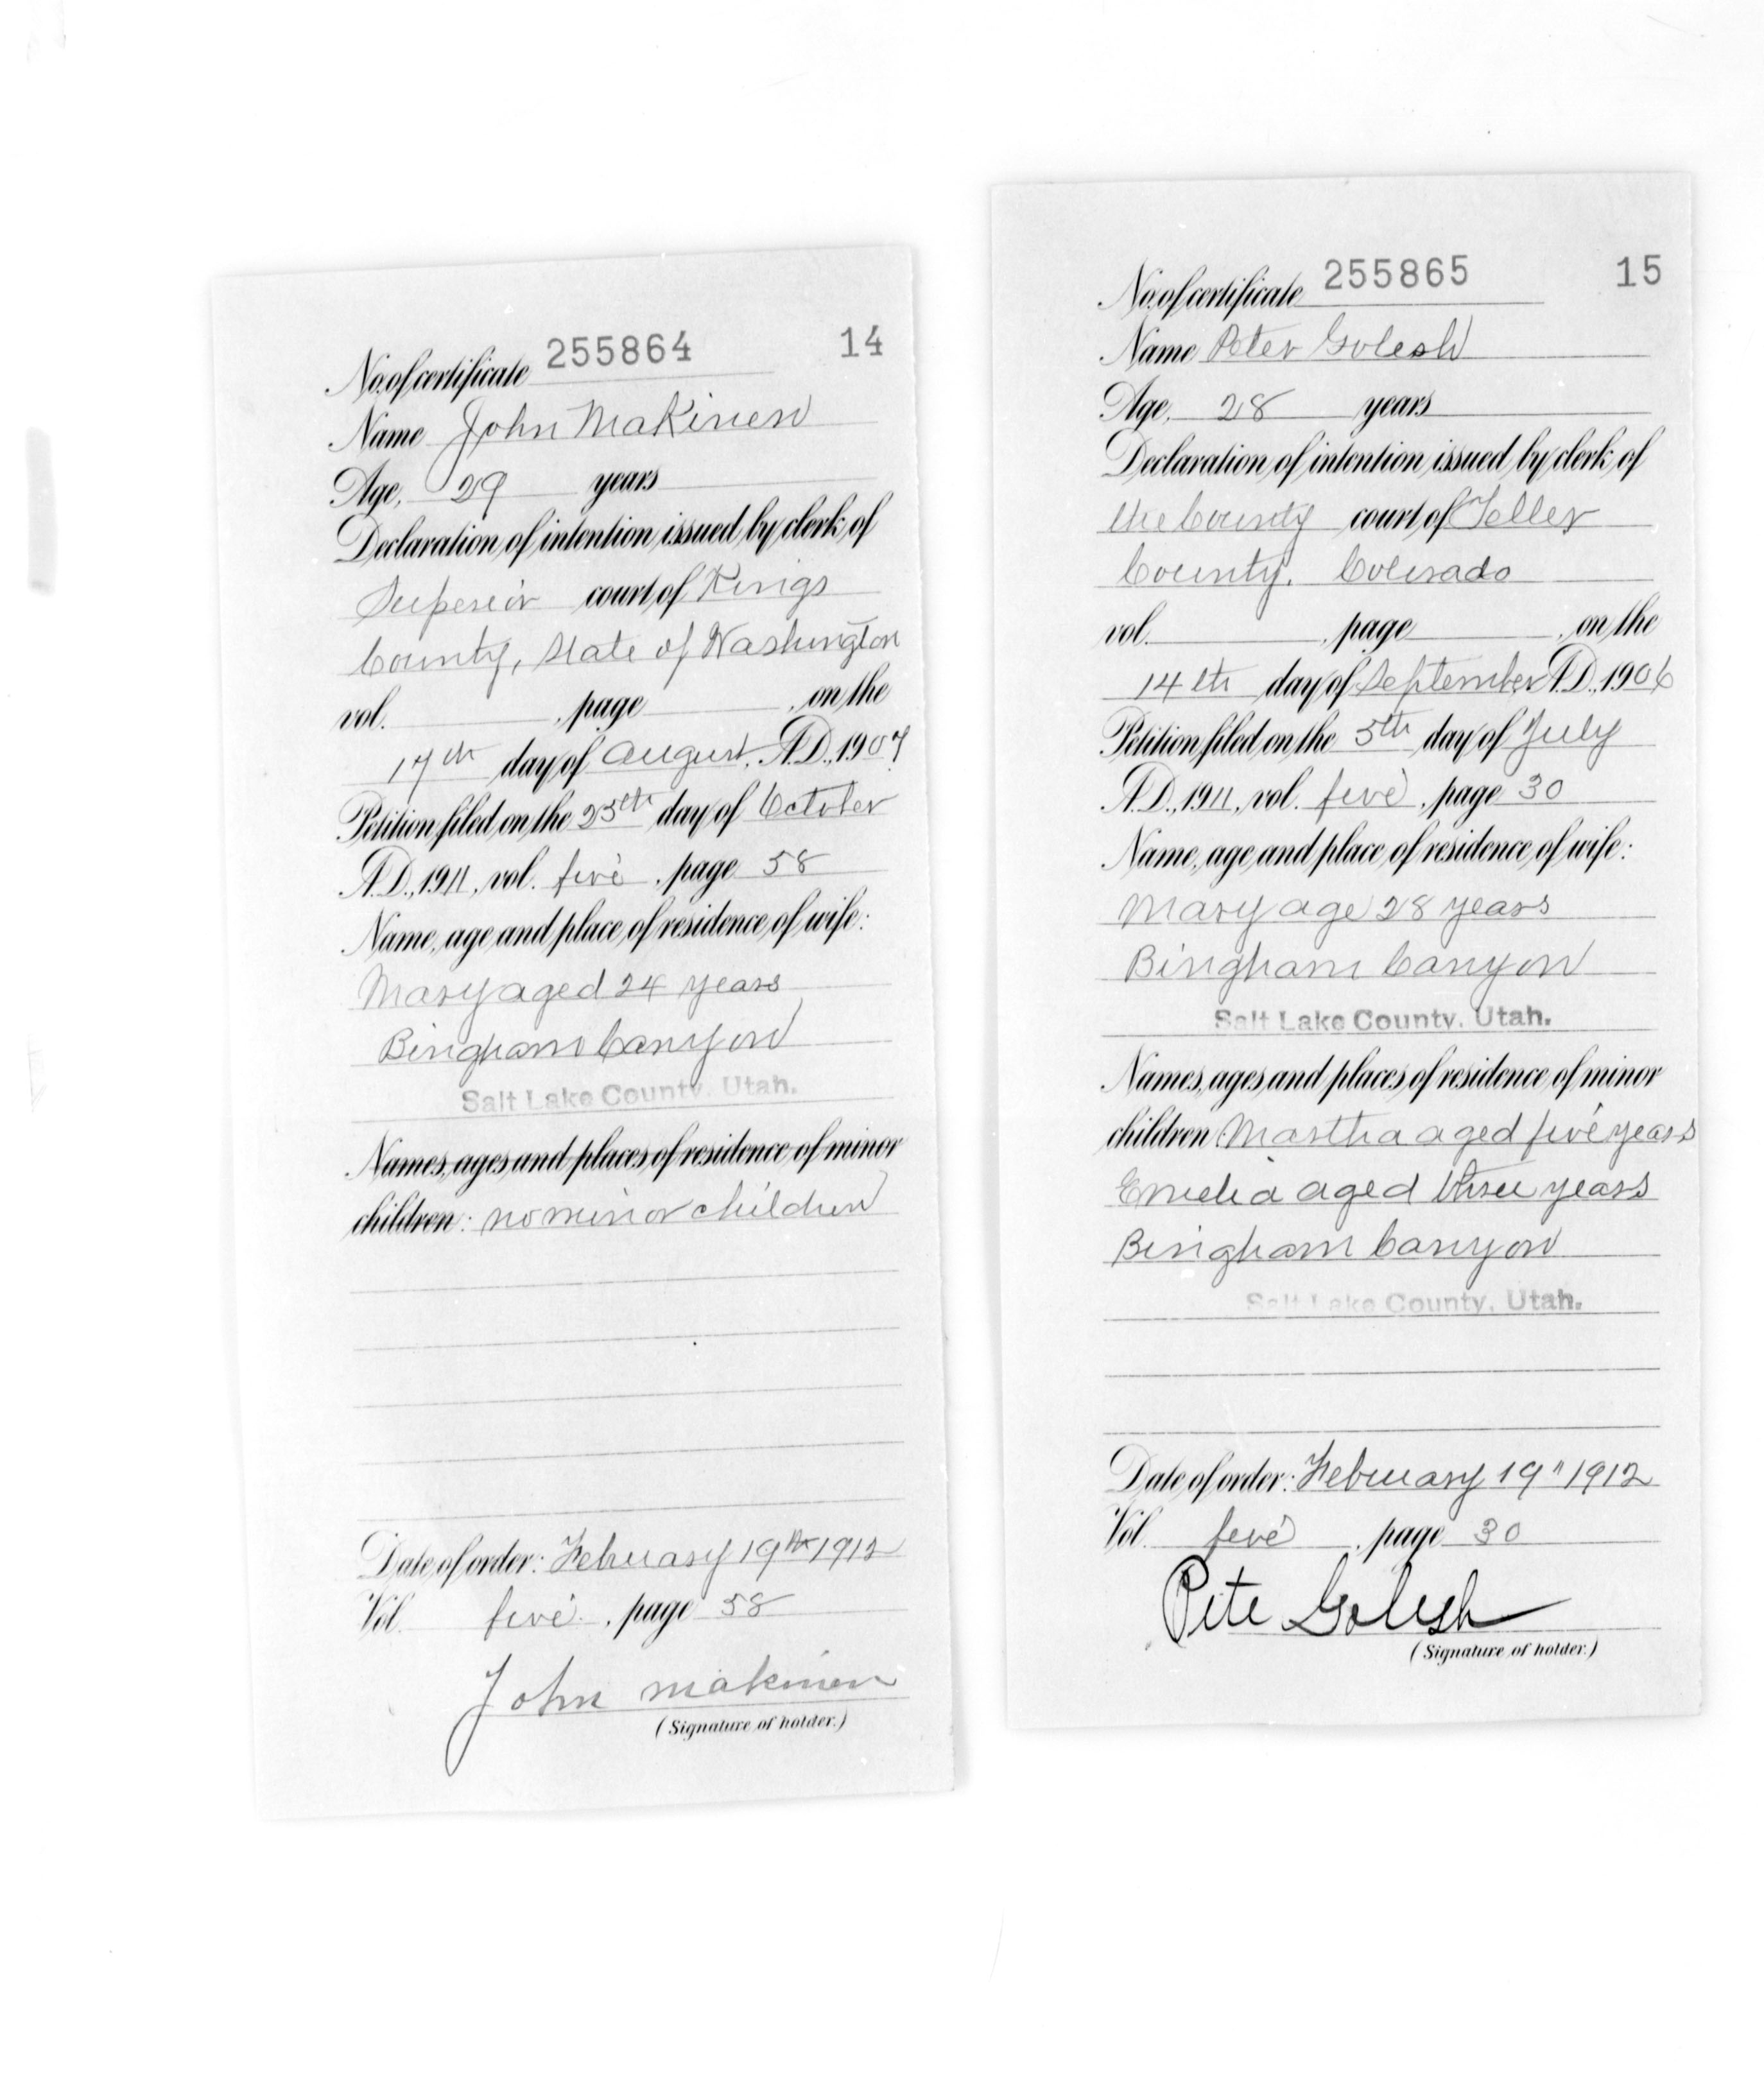 No. of certificate 255864 14
Name John Makinen
Age, 29 years
Declaration of intention issued by clerk of
Superior court of Kings
County, State of Washington
vol. , page , on the
17th day of August, A.D., 1907
Petition filed on the 25th day of October
A.D., 1911, vol. five, page 58
Name, age and place of residence of wife:
Mary aged 24 years
Bingham Canyon
Salt Lake County, Utah.
Names, ages and places of residence of minor
children: no minor children
Date of order: February 19th 1912
Vol. five, page 58
John Makinen
(Signature of holder.)
No. of certificate 255865 15
Name Peter Golesh
Age, 28 years
Declaration of intention issued by clerk of
the County court of Teller
County, Colorado
vol. , page , on the
14th day of September A.D., 1906
Petition filed on the 5th day of July
A.D., 1911, vol. five, page 30
Name, age and place of residence of wife:
Mary age 28 years
Bingham Canyon
Salt Lake County, Utah.
Names, ages and places of residence of minor
children Martha aged five years
Emelia aged three years
Bingham Canyon
Salt Lake County, Utah.
Date of order: February 19" 1912
Vol. five, page 30
Pete Golesh
(Signature of holder.)